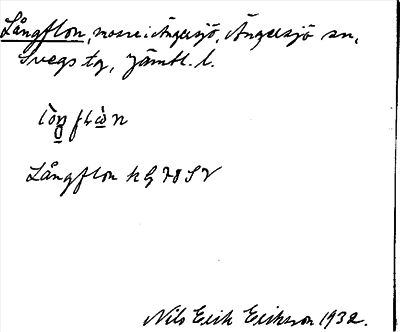 Långflon, mosse i Ängersjö, Ängersjö sn,
Svegs tg, Jämtl. l.
Långflon kG 78 SV
Nils Erik Eriksson 1932.